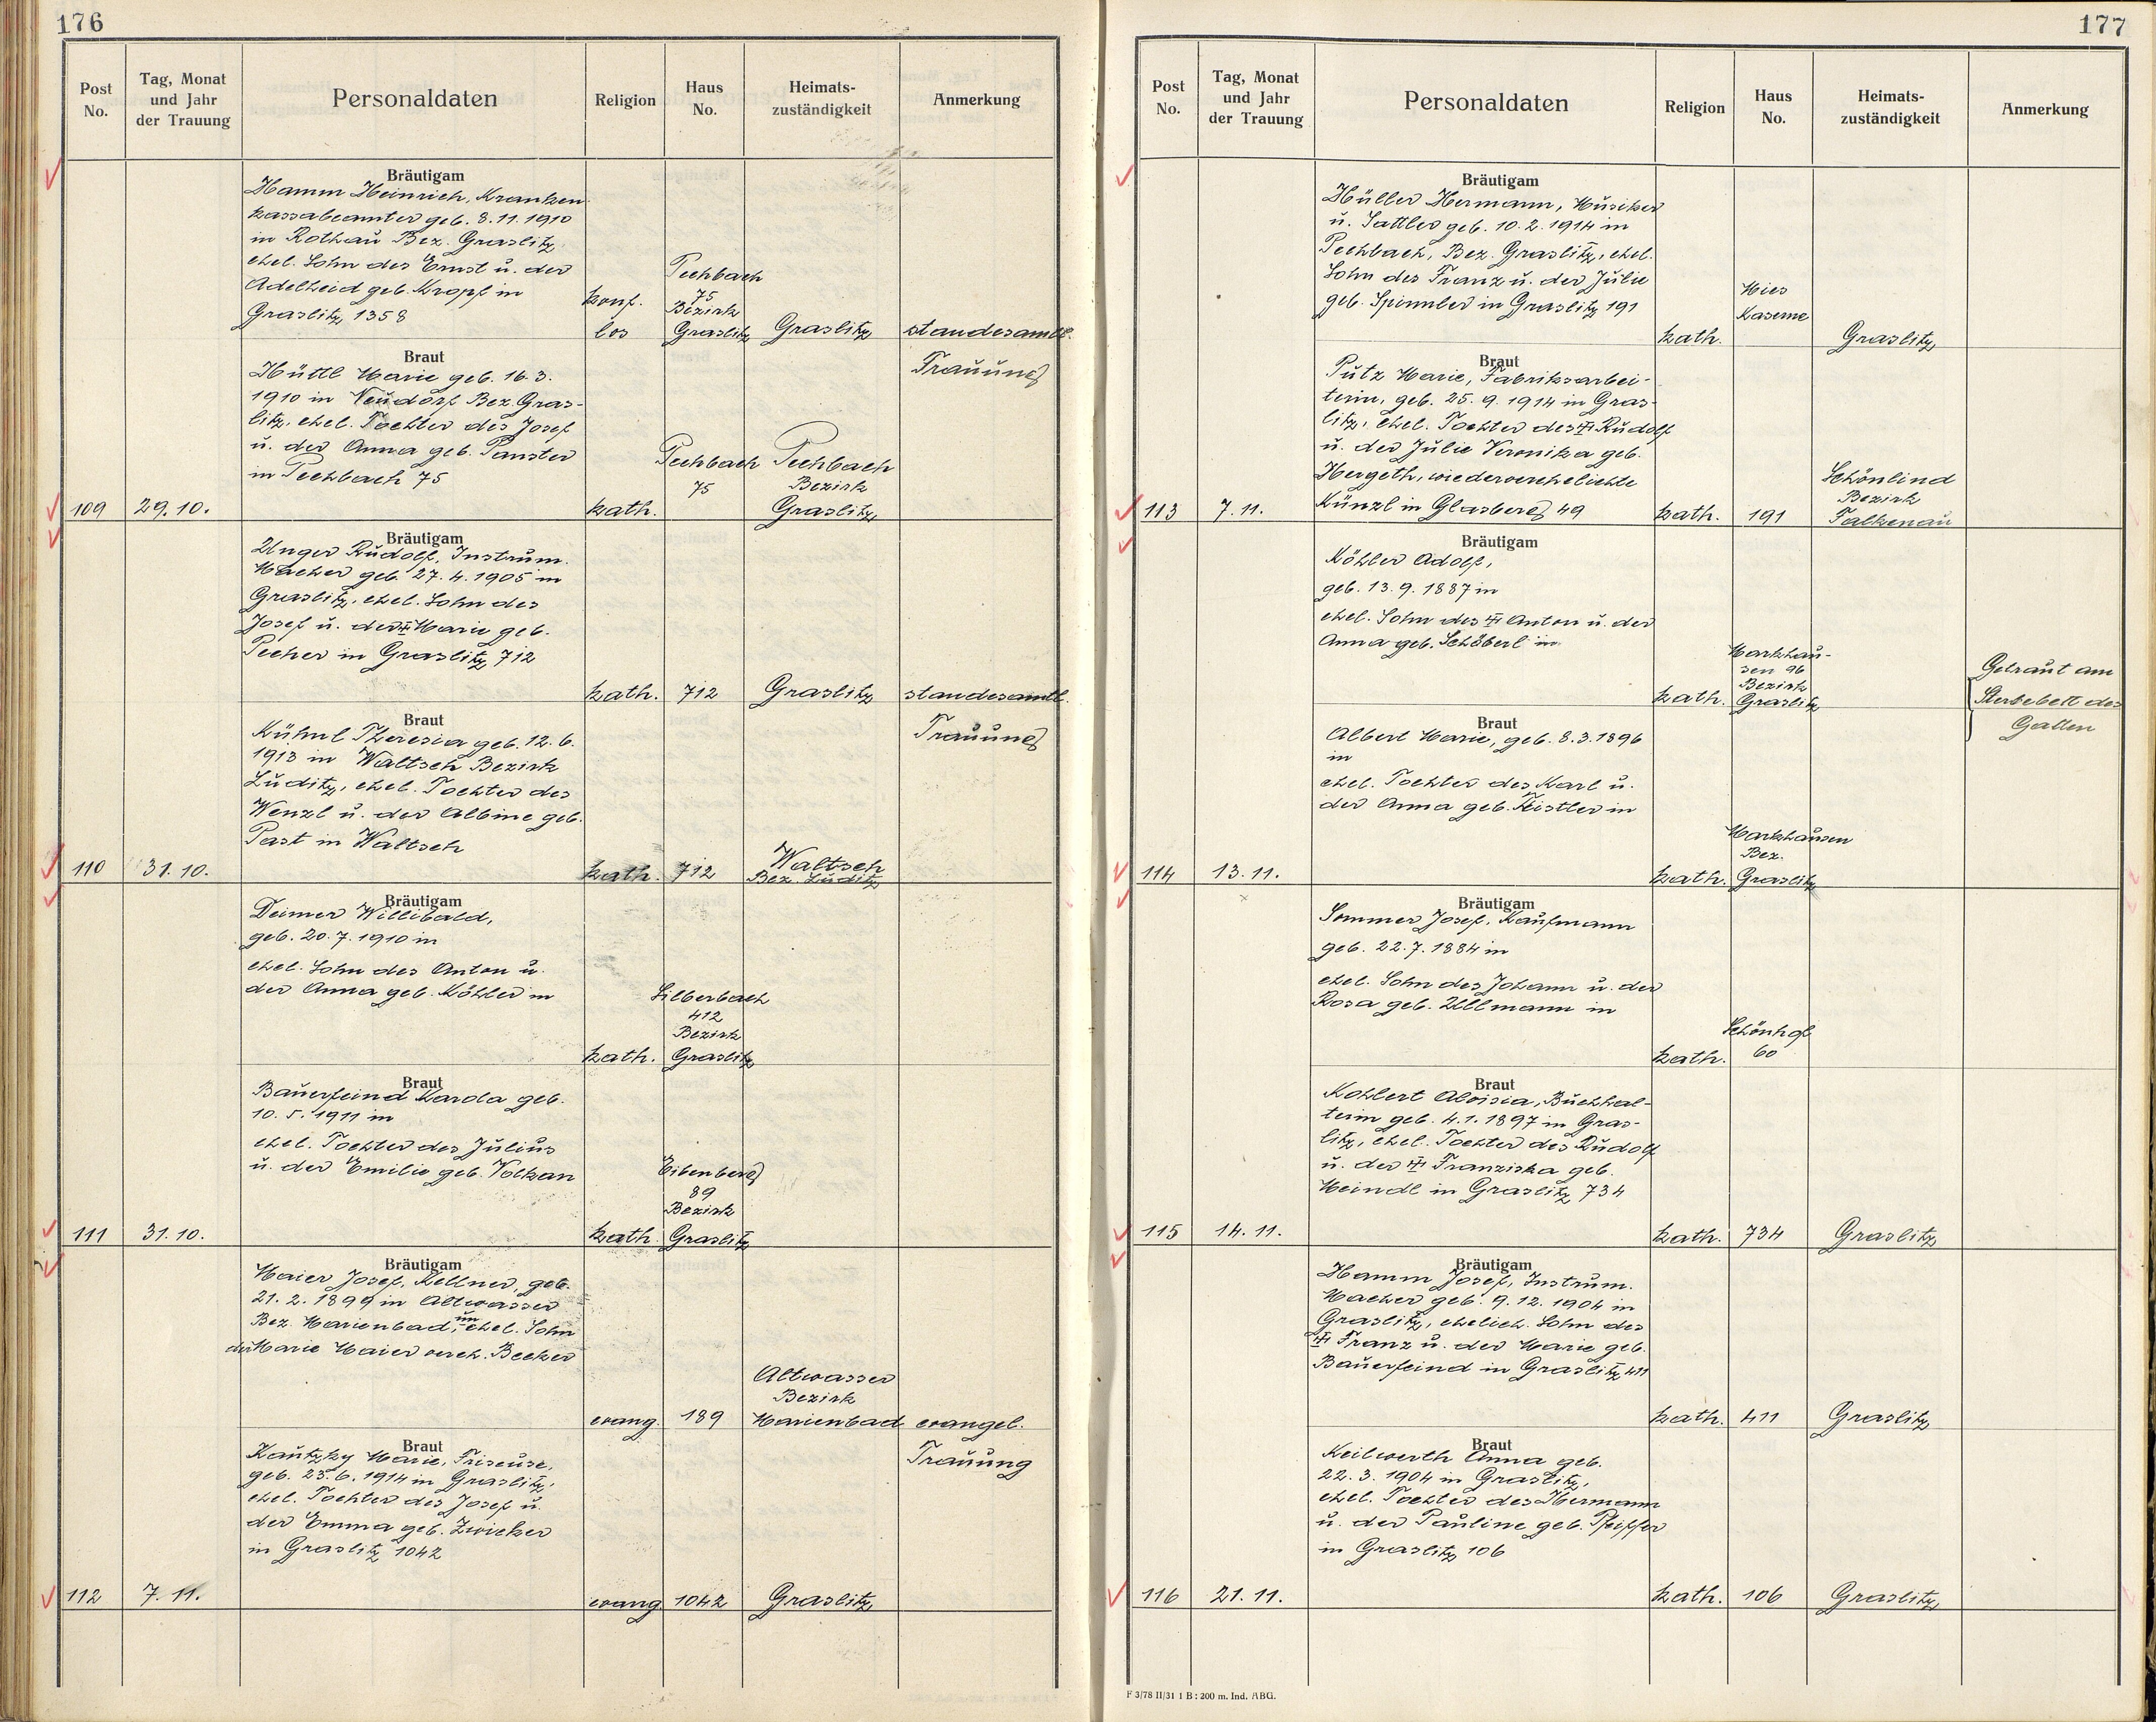 176
Post No.
Tag, Monat und Jahr der Trauung
Personaldaten
Religion
Haus No.
Heimats-zuständigkeit
Anmerkung
Bräutigam
Hamm Heinrich, Kranken
kassabeamter geb. 8.11.1910
in Rothau Bez. Graslitz,
ehel. Sohn des Ernst u. der
Adelheid geb. Kropf in
Graslitz 1358
konf.
los
Pechbach
75
Bezirk
Graslitz
Graslitz
standesamtl.
Trauung
Braut
Hüttl Marie geb. 16.3.
1910 in Neudorf Bez. Gras-
litz, ehel. Tochter des Josef
u. der Anna geb. Panster
in Pechbach 75
109
29.10.
kath.
Pechbach
75
Pechbach
Bezirk
Graslitz
Bräutigam
Unger Rudolf, Instrum.
Macher geb. 27.4.1905 in
Graslitz, ehel. Sohn des
Josef u. der Marie geb.
Pecher in Graslitz 712
kath.
712
Graslitz
standesamtl.
Trauung
Braut
Kühnl Theresia geb. 12.6.
1913 in Waltsch Bezirk
Luditz, ehel. Tochter des
Wenzl u. der Albine geb.
Past in Waltsch
110
31.10.
kath.
712
Waltsch
Bez. Luditz
Bräutigam
Deimer Willibald,
geb. 20.7.1910 in
ehel. Sohn des Anton u.
der Anna geb. Köhler in
kath.
Silberbach
412
Bezirk
Graslitz
Braut
Bauerfeind Karola geb.
10.5.1911 in
ehel. Tochter des Julius
u. der Emilie geb. Volkan
111
31.10.
kath.
Eibenberg
89
Bezirk
Graslitz
Bräutigam
Maier Josef, Kellner, geb.
21.2.1899 in Altwasser
Bez. Marienbad, unehel. Sohn
der Marie Maier verh. Becker
evang.
189
Altwasser
Bezirk
Marienbad
evangel.
Trauung
Braut
Kautzky Marie, Friseuse,
geb. 25.6.1914 in Graslitz,
ehel. Tochter des Josef u.
der Emma geb. Zwicker
in Graslitz 1042
112
7.11.
evang.
1042
Graslitz
177
Post No.
Tag, Monat und Jahr der Trauung
Personaldaten
Religion
Haus No.
Heimats-zuständigkeit
Anmerkung
Bräutigam
Hüller Hermann, Musiker
u. Sattler geb. 10.2.1914 in
Pechbach, Bez. Graslitz, ehel.
Sohn des Franz u. der Julie
geb. Spinnler in Graslitz 191
kath.
Mies
Kaserne
Graslitz
Braut
Putz Marie, Fabriksarbei-
terin, geb. 25.9.1914 in Gras-
litz, ehel. Tochter des Rudolf
u. der Julie Veronika geb.
Hergeth, wiederverehelichte
Künzl in Glasberg 49
113
7.11.
kath.
191
Schönlind
Bezirk
Falkenau
Bräutigam
Köhler Adolf,
geb. 13.9.1887 in
ehel. Sohn des Anton u. der
Anna geb. Schöberl in
kath.
Markhau-
sen 96
Bezirk
Graslitz
Getraut am
Sterbebett des
Gatten
Braut
Albert Marie, geb. 8.3.1896
in
ehel. Tochter des Karl u.
der Anna geb. Feistler in
114
13.11.
kath.
Markhausen
Bez.
Graslitz
Bräutigam
Sommer Josef, Kaufmann
geb. 22.7.1884 in
ehel. Sohn des Johann u. der
Rosa geb. Ullmann in
kath.
Schönhof
60
Braut
Kohlert Aloisia, Buchhal-
terin geb. 4.1.1897 in Gras-
litz, ehel. Tochter des Rudolf
u. der Franziska geb.
Meindl in Graslitz 734
115
14.11.
kath.
734
Graslitz
Bräutigam
Hamm Josef, Instrum.
Macher geb. 9.12.1904 in
Graslitz, ehelich. Sohn des
Franz u. der Marie geb.
Bauerfeind in Graslitz 411
kath.
411
Graslitz
Braut
Keilwerth Anna geb.
22.3.1904 in Graslitz,
ehel. Tochter des Hermann
u. der Pauline geb. Pfeiffer
in Graslitz 106
116
21.11.
kath.
106
Graslitz
F 3/78 II/31 1 B : 200 m. Ind. ABG.